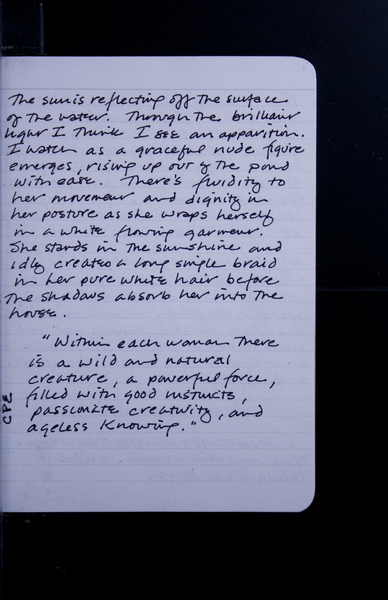 The sun is reflecting off the surface
of the water. Through the brilliant
light I think I see an apparition.
I watch as a graceful nude figure
emerges, rising up out of the pond
with ease. There's fluidity to
her movement and dignity in
her posture as she wraps herself
in a white flowing garment.
She stands in the sunshine and
idly creates a long single braid
in her pure white hair before
the shadows absorb her into the
house.
"Within each woman there
is a wild and natural
creature, a powerful force,
filled with good instincts,
passionate creativity, and
ageless knowing."
CPE